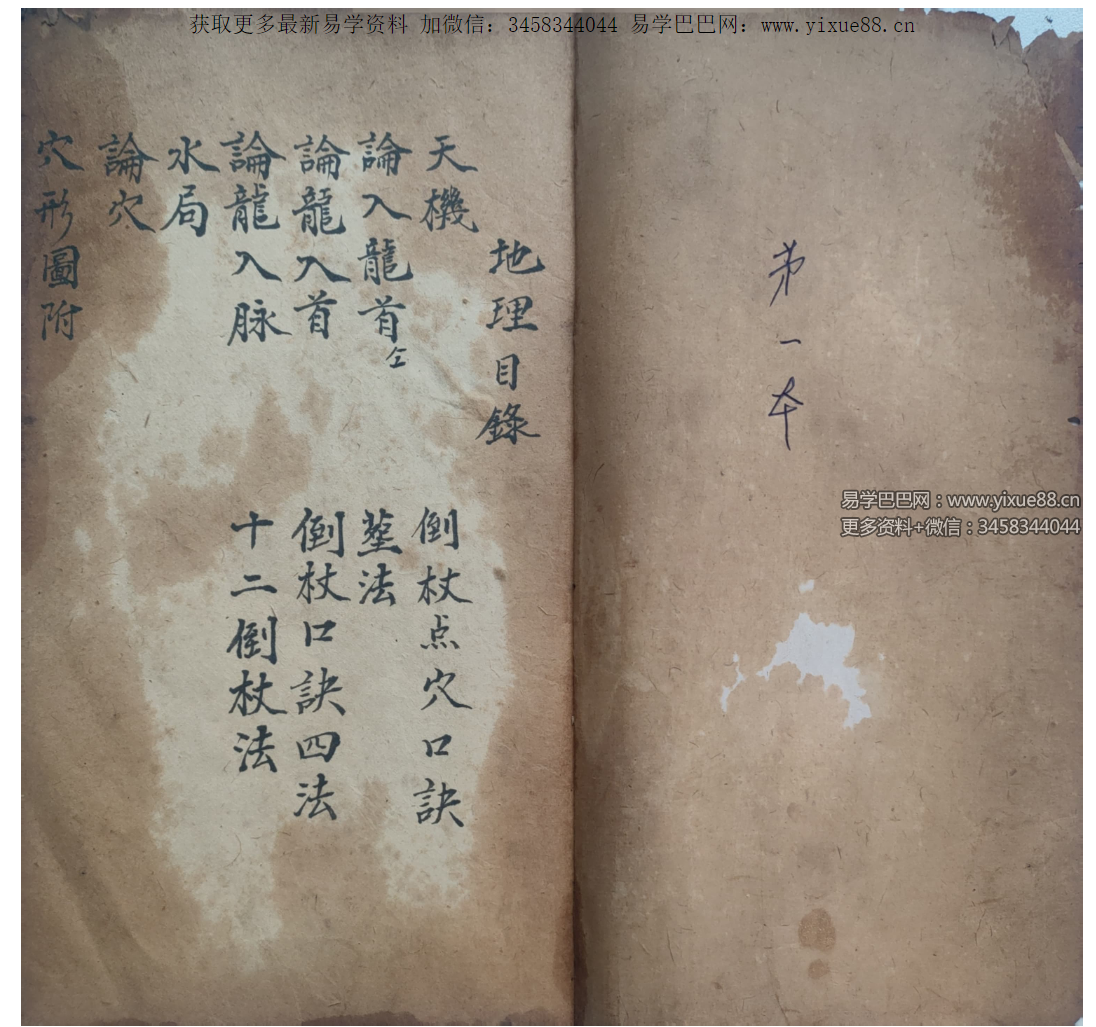 获取更多最新易学资料 加微信：3458344044 易学巴巴网：www.yixue88.cn
第一本
易学巴巴网：www.yixue88.cn
更多资料+微信：3458344044
地理目錄
天機
倒杖点穴口訣
論入龍首
塟法
論龍入首
倒杖口訣四法
論龍入脉
十二倒杖法
水局
論穴
穴形圖附